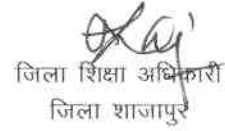 जिला शिक्षा अधिकारी
जिला शाजापुर